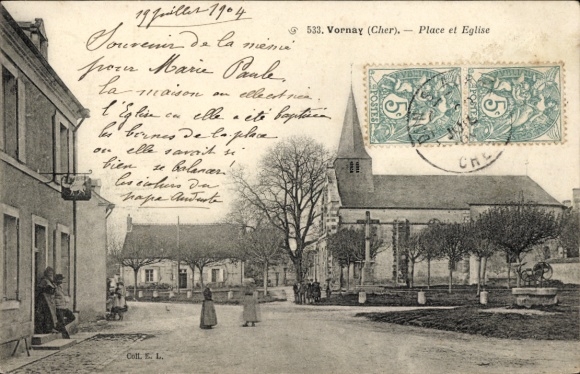 19 juillet 1904
533. Vornay (Cher). — Place et Eglise
Souvenir de la mémé
pour Marie Paule
la maison ou elle
l'Eglise ou elle a été baptisée
les bornes de la place
ou elle savait si
bien se balancer
les écoliers du
papa
POSTES
5
5
CHER
Coll. E. L.